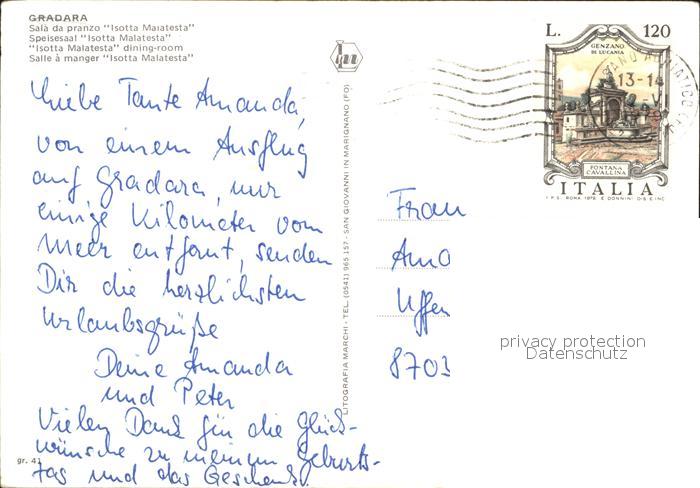 GRADARA
Sala da pranzo "Isotta Malatesta"
Speisesaal "Isotta Malatesta"
"Isotta Malatesta" dining-room
Salle à manger "Isotta Malatesta"
Liebe Tante Amanda,
von einem Ausflug
auf Gradara, nur
einige Kilometer vom
Meer entfernt, senden
Dir die herzlichsten
Urlaubsgrüße
Deine Amanda
und Peter
Vielen Dank für die Glück-
wünsche zu meinem Geburts-
tag und das Geschenk.
gr. 41
LITOGRAFIA MARCHI - TEL. (0541) 965.157 - SAN GIOVANNI IN MARIGNANO (FO)
L. 120
GENZANO
DI LUCANIA
13-14
FONTANA
CAVALLINA
ITALIA
I.P.S. ROMA 1976 E. DONNINI DIS. E INC.
Frau
Ama
Uffen
8703
privacy protection
Datenschutz